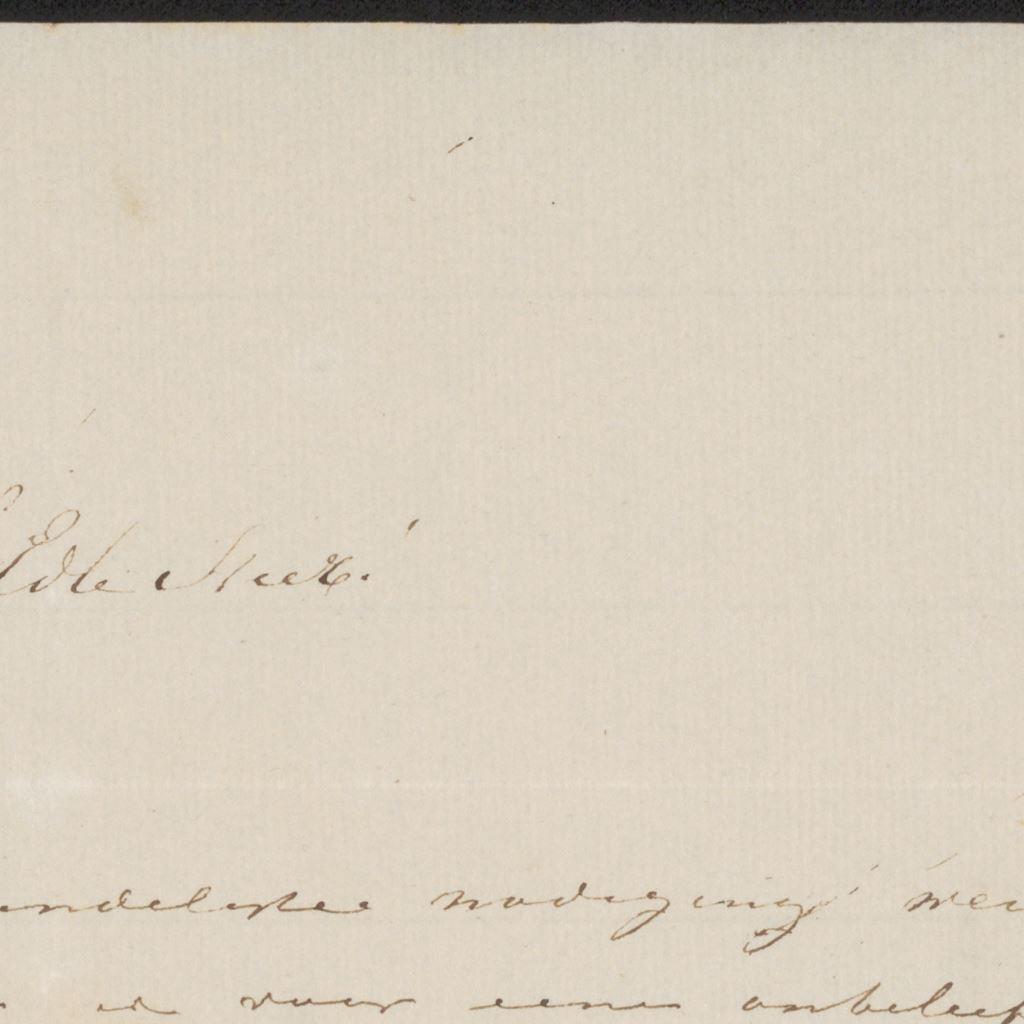 Edle Heer!
endelyke nodiging
is voor eene onbeleef